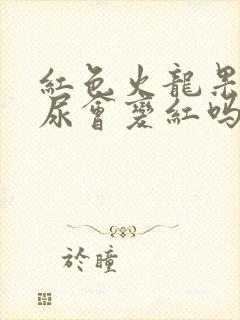 紅色火龍果
尿會變紅嗎
於瞳